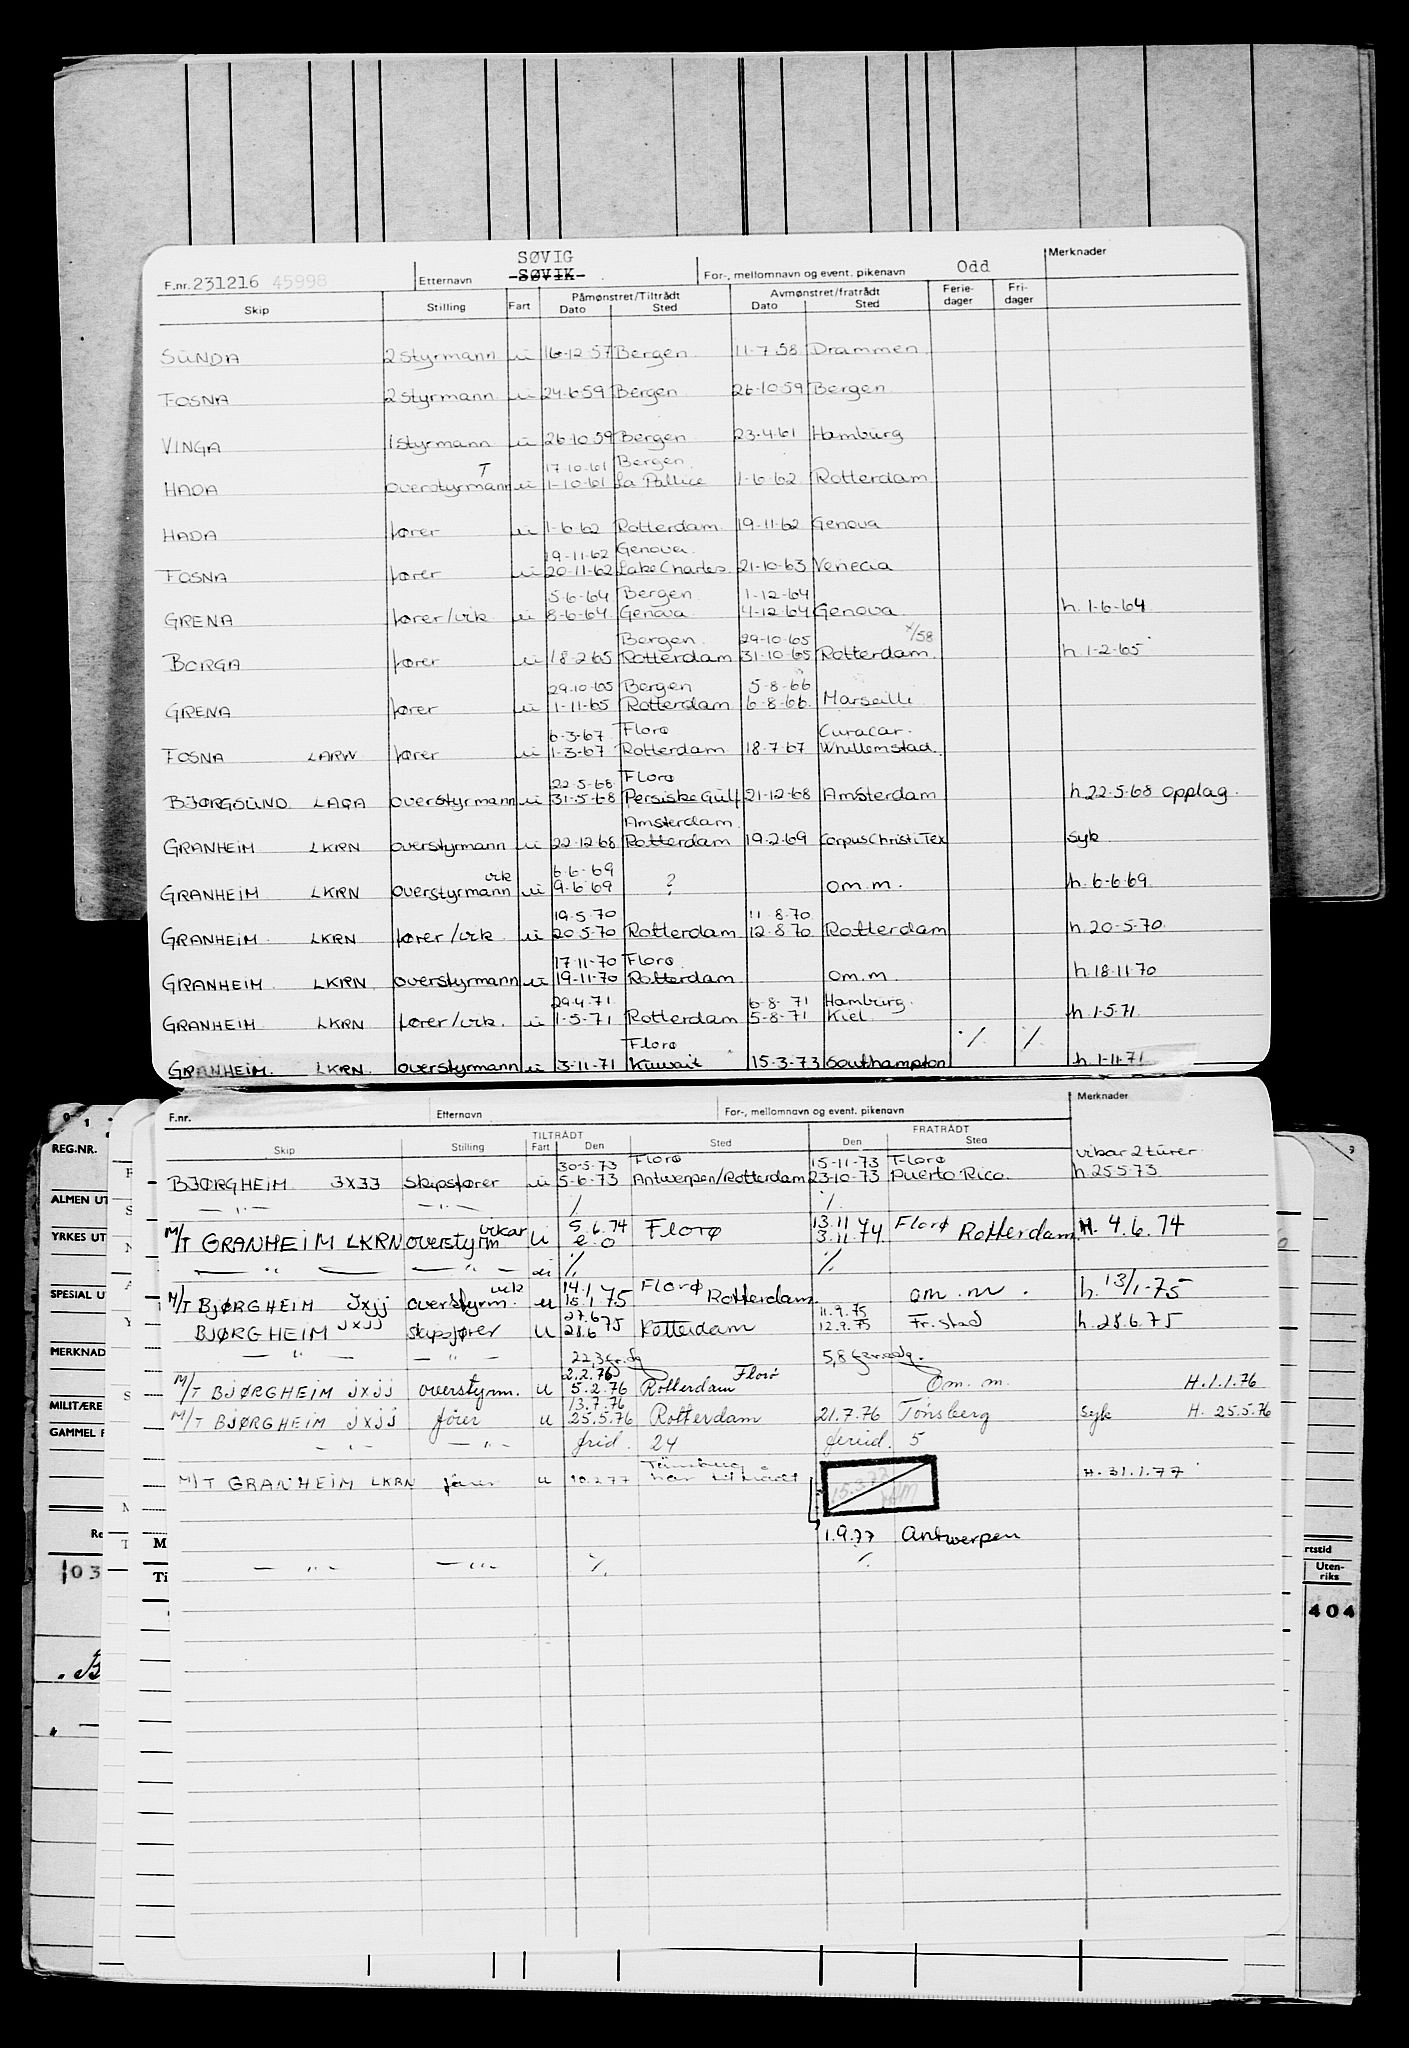 SØVIG
F.nr. 231216 45998 Etternavn SØVIK For-, mellomnavn og event. pikenavn Odd Merknader
Påmønstret/Tiltrådt Avmønstret/fratrådt Ferie- Fri-
Skip Stilling Fart Dato Sted Dato Sted dager dager
SUNDA 2 styrmann u 16-12-57 Bergen 11-7-58 Drammen
FOSNA 2 styrmann u 24-6-59 Bergen 26-10-59 Bergen
VINGA 1 styrmann u 26-10-59 Bergen 23-4-61 Hamburg
T 17-10-61 Bergen
HADA overstyrmann u 1-10-61 La Pallice 1-6-62 Rotterdam
HADA fører u 1-6-62 Rotterdam 19-11-62 Genova
19-11-62 Genova
FOSNA fører u 20-11-62 Lake Charles 21-10-63 Venecia
5-6-64 Bergen 1-12-64
GRENA fører/vik u 8-6-64 Genova 4-12-64 Genova h. 1-6-64
Bergen 29-10-65 x/58
BORGA fører u 18-2-65 Rotterdam 31-10-65 Rotterdam h. 1-2-65
29-10-65 Bergen 5-8-66
GRENA fører u 1-11-65 Rotterdam 6-8-66 Marseille
6-3-67 Florø Curacar.
FOSNA LARW fører u 1-3-67 Rotterdam 18-7-67 Whillemstad
22-5-68 Florø
BJØRGSUND LAQA overstyrmann u 31-5-68 Persiske Gulf 21-12-68 Amsterdam h. 22-5-68 opplag
Amsterdam
GRANHEIM LKRN overstyrmann u 22-12-68 Rotterdam 19-2-69 Corpus Christi Tex syk
vik 6-6-69 ?
GRANHEIM LKRN overstyrmann u 9-6-69 om.m. h. 6-6-69
19-5-70 11-8-70
GRANHEIM LKRN fører/vik u 20-5-70 Rotterdam 12-8-70 Rotterdam h. 20-5-70
17-11-70 Florø
GRANHEIM LKRN overstyrmann u 19-11-70 Rotterdam om.m. h. 18-11-70
29-4-71 6-8-71 Hamburg
GRANHEIM LKRN fører/vik. u 1-5-71 Rotterdam 5-8-71 Kiel h. 1-5-71
Florø ./. ./.
GRANHEIM LKRN overstyrmann u 3-11-71 Kuwait 15-3-73 Southampton h. 1-11-71
F.nr. Etternavn For-, mellomnavn og event. pikenavn Merknader
TILTRÅDT FRATRÅDT
Skip Stilling Fart Den Sted Den Sted
30-5-73 Florø 15-11-73 Florø vikar 2 turer
BJØRGHEIM JXJJ skipsfører u 5-6-73 Antwerpen/Rotterdam 23-10-73 Puerto Rico h. 25-5-73
— " — — " — ./. ./.
vikar 5.6.74 13.11
M/T GRANHEIM LKRN overstyrm u e.o Florø 3.11.74 Florø Rotterdam H. 4.6.74
— " — — " — u ./. ./.
vik 14.1
M/T BJØRGHEIM Jxjj overstyrm. u 15.1.75 Florø Rotterdam om.m. h. 13/1-75
27.6 11.9.75
BJØRGHEIM JXJJ skipsfører u 28.6.75 Rotterdam 12.9.75 Fr.stad h. 28.6.75
— " — — " —
2.2.76 Florø
M/T BJØRGHEIM jxjj overstyrm. u 5.2.76 Rotterdam Om. m. H. 1.1.76
13.7.76
M/T BJØRGHEIM jxjj fører u 25.5.76 Rotterdam 21.7.76 Tönsberg syk H. 25.5.76
— " — — " — frid. 24 feried. 5
Tönsberg
M/T GRANHEIM LKRN fører u 10.2.77 har tiltrådt H. 31.1.77
1.9.77 Antwerpen
— " — — " — ./. ./.
REG.NR.
ALMEN UT
YRKES UT
SPESIAL U
MERKNAD
MILITÆRE
GAMMEL F
Re
103
M
Ti
rtstid
Uten-
riks
404